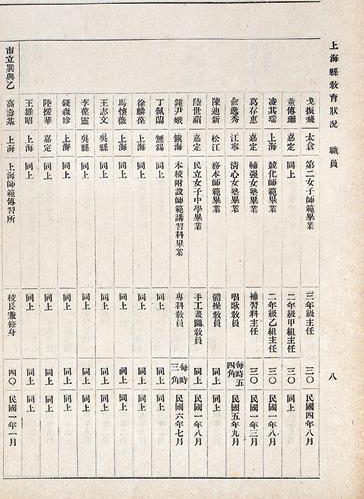 上海縣敎育狀況 職員 八
戈振藏 太倉 第二女子師範畢業 三年級主任 三〇 民國四年八月
童傳珊 嘉定 同上 二年級甲組主任 三〇 同上
凌其瑞 上海 競化師範畢業 二年級乙組主任 三〇 民國一年八月
葛存惠 嘉定 輔强女塾畢業 補習科主任 三〇 民國一年三月
俞逸秀 江寧 清心女塾畢業 唱歌敎員 每時五四角 民國五年九月
陳迪新 松江 務本師範畢業 體操敎員 同上 同上
陸世蘋 嘉定 民立女子中學畢業 手工圖畫敎員 同上 民國一年八月
鍾尹娥 鎭海 本校附設師範講習科畢業 專科敎員 每時三角 民國六年七月
丁佩蘭 無錫 同上 同上 同上 同上
徐麟葆 上海 同上 同上 同上 同上
馬懷薇 上海 同上 同上 同上 同上
王志文 吳縣 同上 同上 同上 同上
李葆靈 吳縣 同上 同上 同上 同上
錢森珍 上海 同上 同上 同上 同上
陸煖華 嘉定 同上 同上 同上 同上
王維昭 上海 同上 同上 同上 同上
市立巽與乙 高壽基 上海 上海師範傳習所 校長兼修身 四〇 民國一年一月